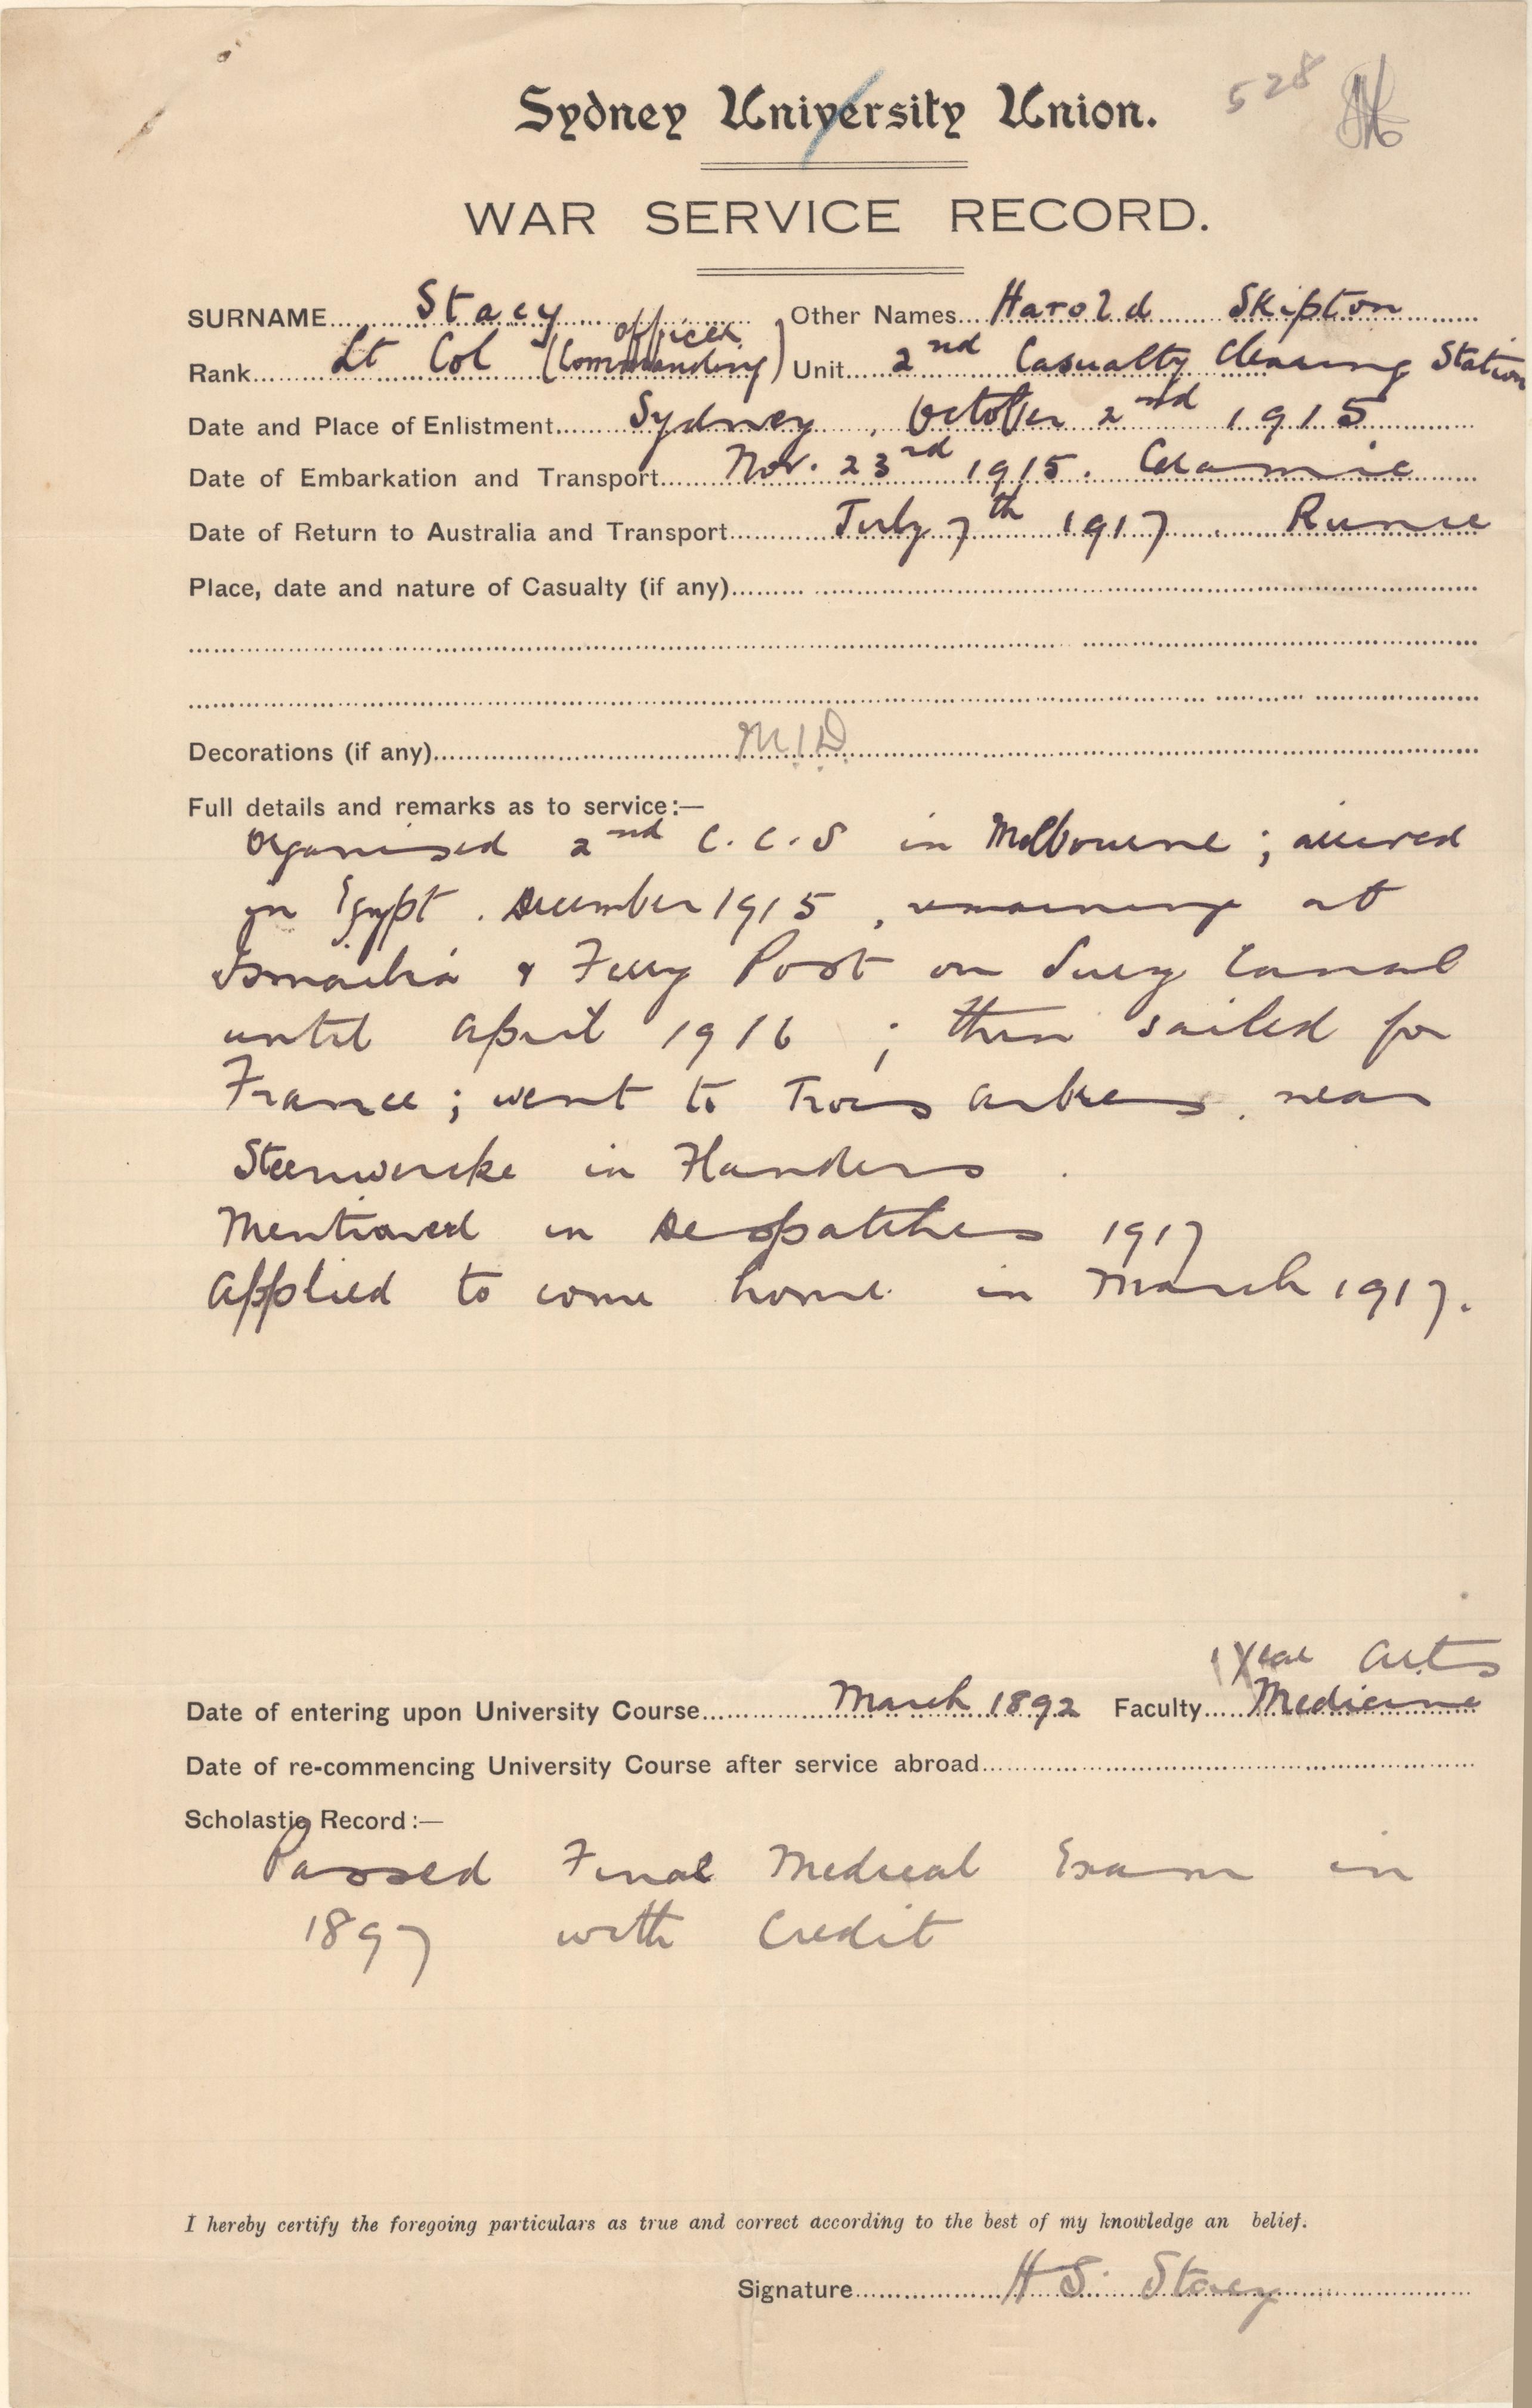 528
Sydney University Union.
WAR SERVICE RECORD.
SURNAME Stacy Other Names Harold Skipton
Rank Lt Col (Commanding officer) Unit 2nd Casualty Clearing Station
Date and Place of Enlistment Sydney, October 2nd 1915
Date of Embarkation and Transport Nov. 23rd 1915. Ceramic
Date of Return to Australia and Transport July 7th 1917 Runic
Place, date and nature of Casualty (if any)
Decorations (if any) M.I.D.
Full details and remarks as to service:—
Organised 2nd C.C.S in Melbourne; arrived
in Egypt. December 1915, remaining at
Ismailia & Ferry Post on Suez Canal
until April 1916; then sailed for
France; went to Trois Arbres, near
Steenwercke in Flanders.
Mentioned in Despatches 1917
Applied to come home in March 1917.
1 Year Arts
Date of entering upon University Course March 1892 Faculty Medicine
Date of re-commencing University Course after service abroad
Scholastic Record:—
Passed Final Medical Exam in
1897 with Credit
I hereby certify the foregoing particulars as true and correct according to the best of my knowledge an belief.
Signature H S. Stacy